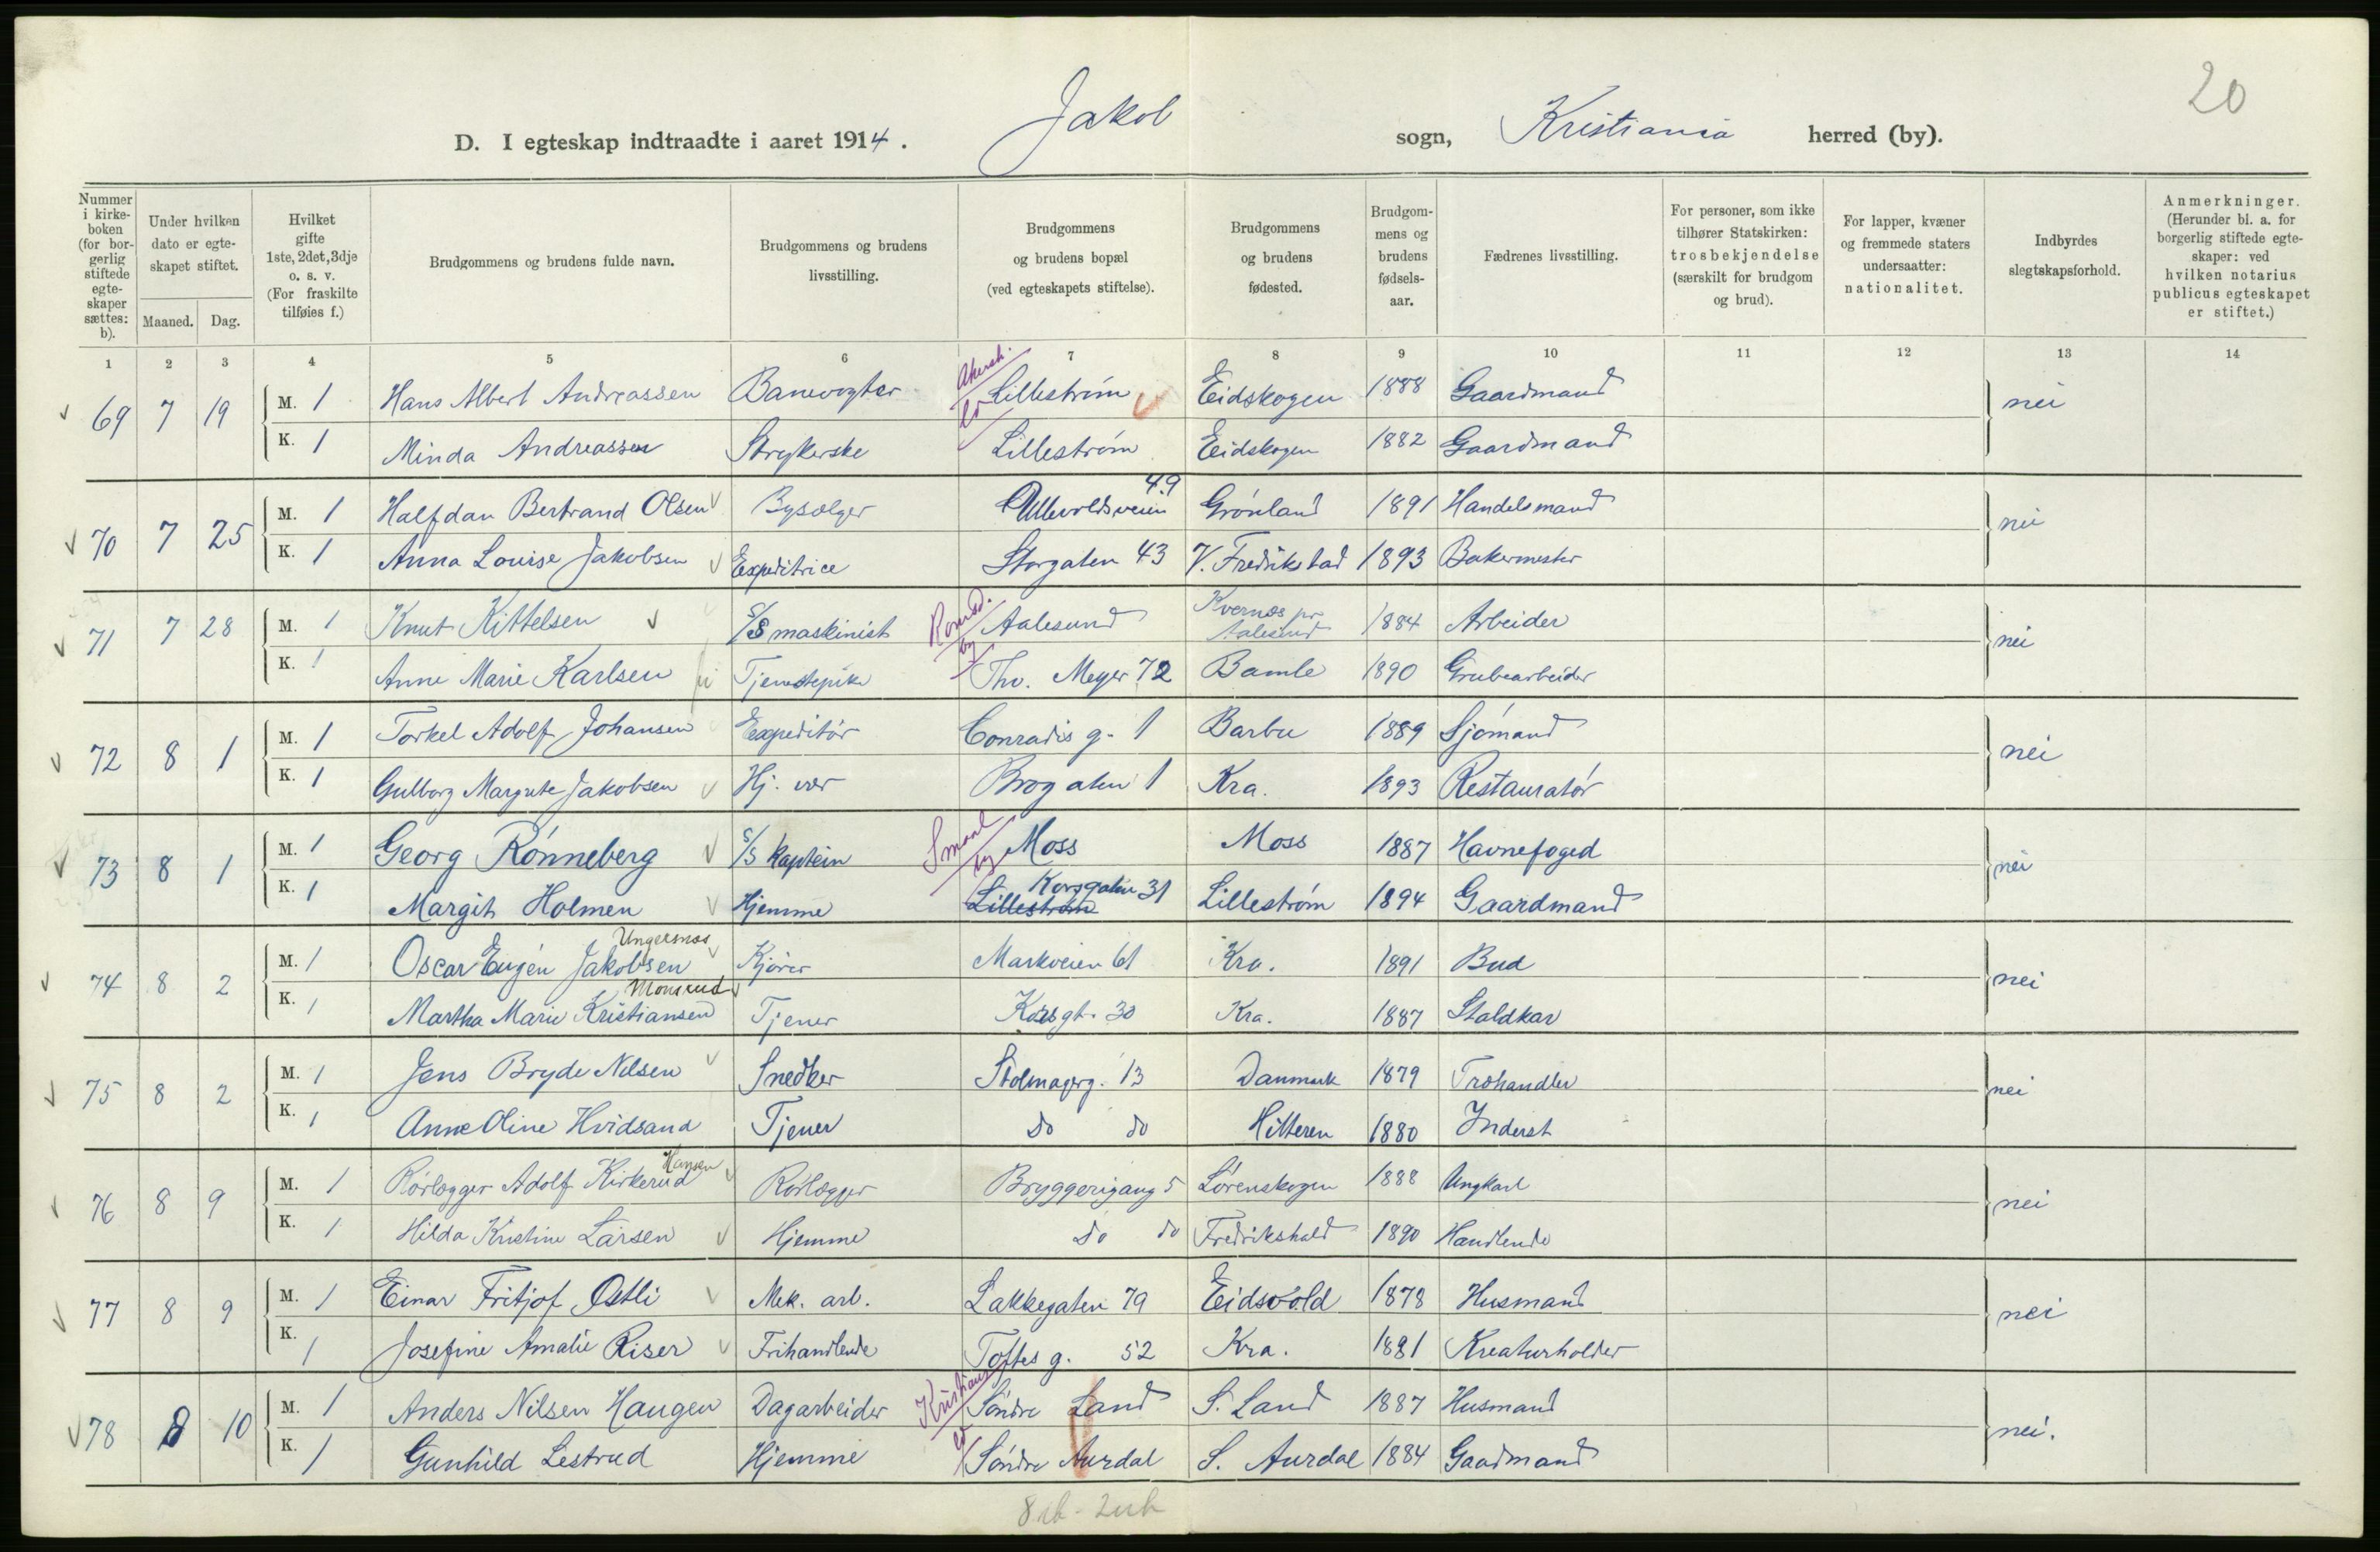 20
D. I egteskap indtraadte i aaret 1914. Jakob sogn, Kristiania herred (by).
Nummer i kirkeboken (for borgerlig stiftede egteskaper sættes: b).
Under hvilken dato er egteskapet stiftet.
Maaned. Dag.
Hvilket gifte 1ste, 2det, 3dje o. s. v. (For fraskilte tilføies f.)
Brudgommens og brudens fulde navn.
Brudgommens og brudens livsstilling.
Brudgommens og brudens bopæl (ved egteskapets stiftelse).
Brudgommens og brudens fødested.
Brudgommens og brudens fødselsaar.
Fædrenes livsstilling.
For personer, som ikke tilhører Statskirken: trosbekjendelse (særskilt for brudgom og brud).
For lapper, kvæner og fremmede staters undersaatter: nationalitet.
Indbyrdes slegtskapsforhold.
Anmerkninger. (Herunder bl. a. for borgerlig stiftede egteskaper: ved hvilken notarius publicus egteskapet er stiftet.)
1 2 3 4 5 6 7 8 9 10 11 12 13 14
69 7 19 M. 1 Hans Albert Andreassen Banevogter Akersh. Lillestrøm Eidskogen 1888 Gaardmand nei
K. 1 Minda Andreassen Strykerske Lillestrøm Eidskogen 1882 Gaardmand
70 7 25 M. 1 Halfdan Bertrand Olsen Bysælger Ullevoldsveien 49 Grønland 1891 Handelsmand nei
K. 1 Anna Louise Jakobsen Expeditrice Storgaten 43 V. Fredrikstad 1893 Bakermester
71 7 28 M. 1 Knut Kittelsen S/S maskinist Romsd. by Aalesund Kvernes pr Aalesund 1884 Arbeider nei
K. 1 Anne Marie Karlsen Tjenestepike Thv. Meyer 72 Bamle 1890 Grubearbeider
72 8 1 M. 1 Torkel Adolf Johansen Expeditør Conradis g. 1 Barbu 1889 Sjømand nei
K. 1 Gulborg Margrete Jakobsen Hj. vær Brogaten 1 Kra. 1893 Restauratør
73 8 1 M. 1 Georg Rønneberg S/S kaptein Smaal by Moss Moss 1887 Havnefoged nei
K. 1 Margit Holmen Hjemme Lillestrøm Korsgaten 31 Lillestrøm 1894 Gaardmand
74 8 2 M. 1 Oscar Eugén Jakobsen Ungersnæs Kjører Markveien 61 Kra. 1891 Bud nei
K. 1 Martha Marie Kristiansen Monsrud Tjener Korsgt. 30 Kra. 1887 Staldkar
75 8 2 M. 1 Jens Bryde Nilsen Snedker Stolmagerg. 13 Danmark 1879 Træhandler nei
K. 1 Anne Oline Hvidsand Tjener do do Hitteren 1880 Inderst
76 8 9 M. 1 Rørlægger Adolf Kirkerud Hansen Rørlægger Bryggerigang 5 Lørenskogen 1888 Ungkarl nei
K. 1 Hilda Kristine Larsen Hjemme do do Fredrikshald 1890 Handlende
77 8 9 M. 1 Einar Fritjof Østli Mek. arb. Lakkegaten 79 Eidsvold 1878 Husmand nei
K. 1 Josefine Amalie Riser Frihandlende Toftes g. 52 Kra. 1881 Kreaturholder
78 8 10 M. 1 Anders Nilsen Haugen Dagarbeider Kristians Søndre Land S. Land 1887 Husmand nei.
K. 1 Gunhild Lestrud Hjemme Søndre Aurdal S. Aurdal 1884 Gaardmand